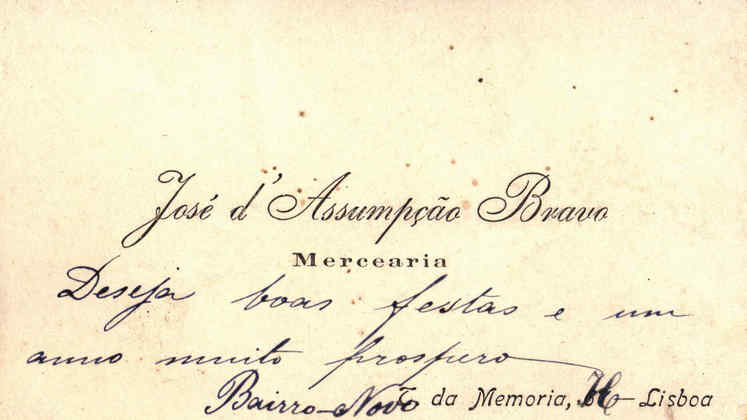 José d'Assumpção Bravo
Mercearia
Deseja boas festas e um
anno muito prospero
Bairro-Novo da Memoria, Lisboa